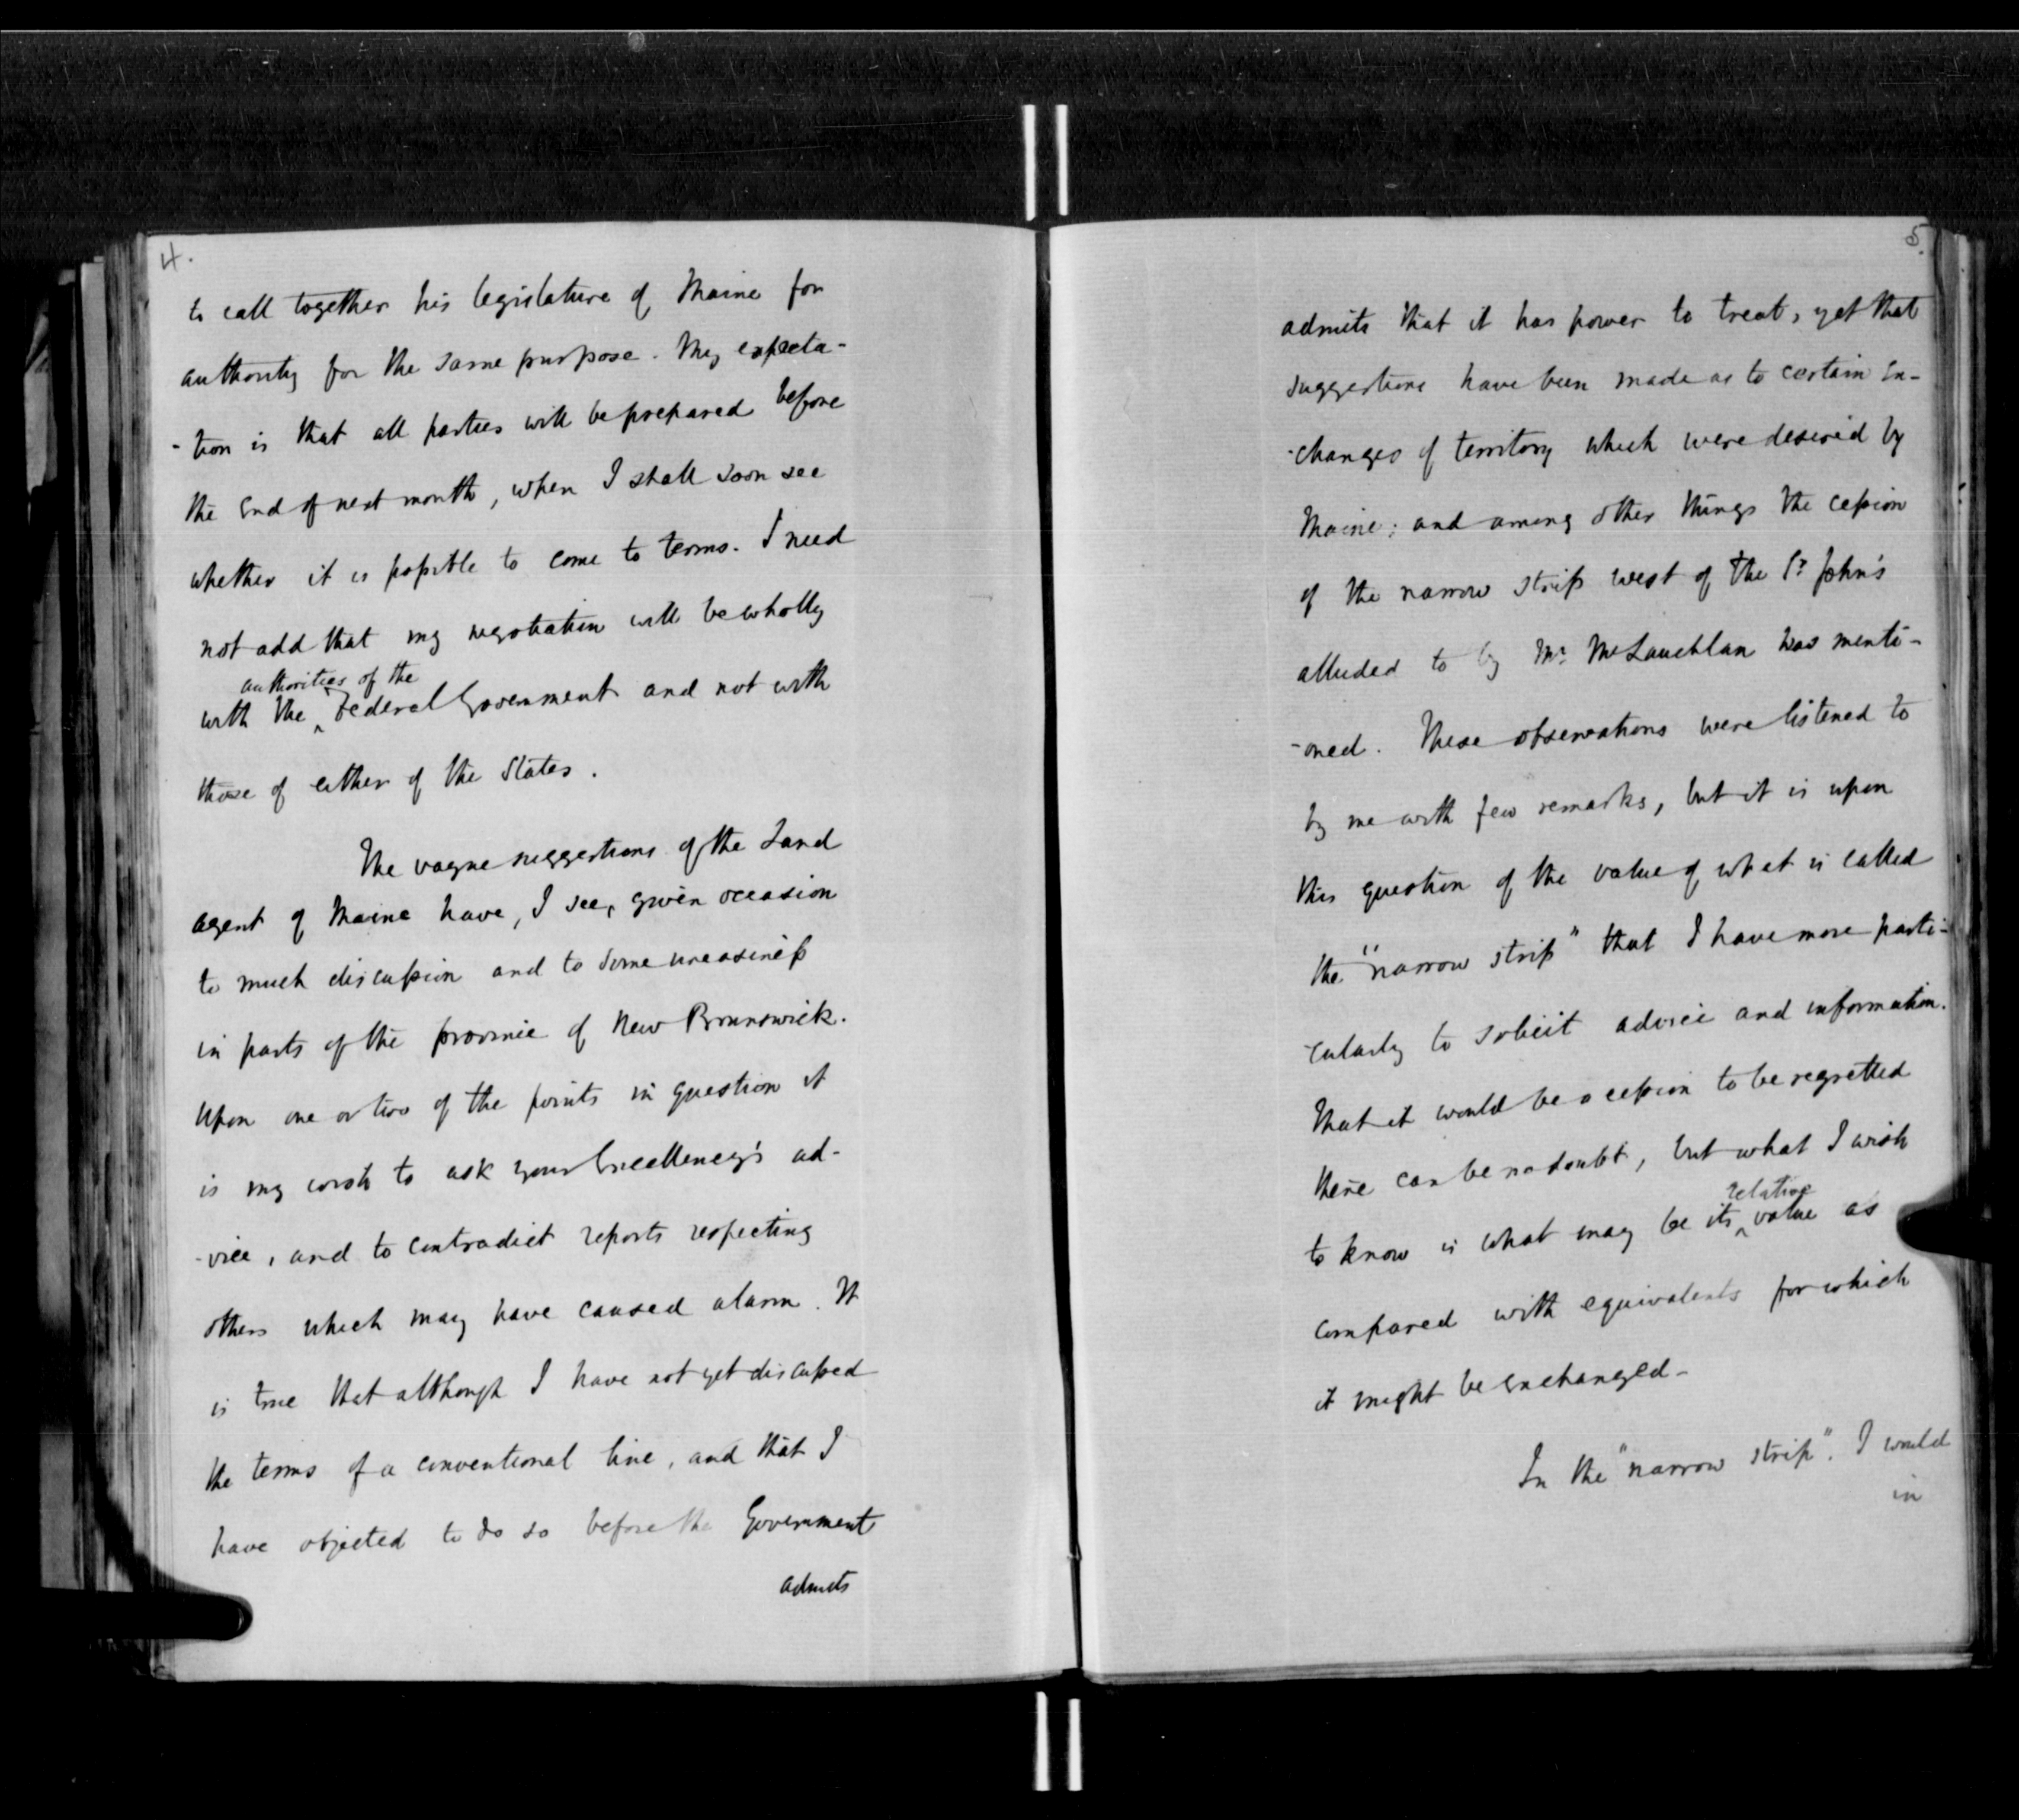 4.
to call together his legislature of Maine for
authority for the same purpose. My expecta-
-tion is that all parties will be prepared before
the End of next month, when I shall soon see
whether it is possible to come to terms. I need
not add that my negotiation will be wholly
authorities of the
with the ^ Federal Government and not with
those of either of the States.
The vague suggestions of the Land
agent of Maine have, I see, given occasion
to much discussion and to some uneasiness
in parts of the province of New Brunswick.
Upon one or two of the points in question it
is my wish to ask your Excellency's ad-
-vice, and to contradict reports respecting
others which may have caused alarm. It
is true that although I have not yet discussed
the terms of a conventional line, and that I
have objected to do so before the Government
admits
5.
admits that it has power to treat, yet that
suggestions have been made as to certain Ex-
-changes of territory which were desired by
Maine; and among other things the cession
of the narrow strip west of the St. John's
alluded to by Mr. McLauchlan was menti-
-oned. These observations were listened to
by me with few remarks, but it is upon
this question of the value of what is called
the "narrow strip" that I have more parti-
-cularly to solicit advice and information.
That it would be a cession to be regretted
there can be no doubt, but what I wish
relative
to know is what may be its ^ value as
compared with equivalents for which
it might be Exchanged-
In the "narrow strip". I would
in